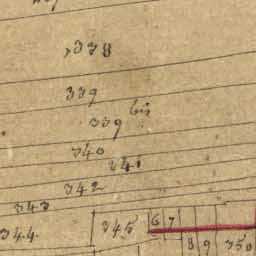 338
339
339 bis
340
341
342
343
344
345
6 7
8 9 350